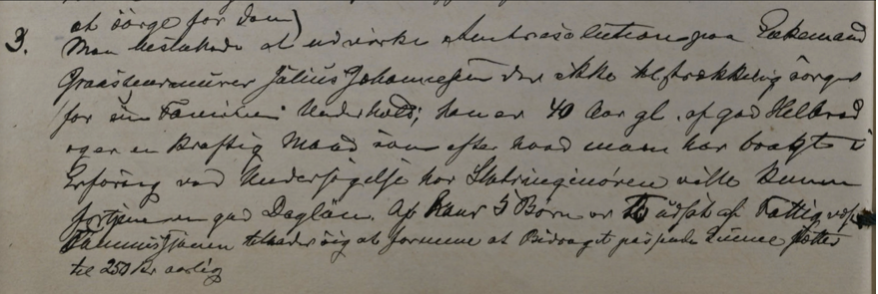 at sörge for dem)
3. Man besluttede at udvirke Amtsresolution paa Enkemand
Graastensmurer Julius Johannesen der ikke tilstrækkelig sörger
for sin Families Underhold; han er 40 Aar gl. af god Helbred
og er en kraftig Mand som efter hvad man har bragt i
Erfaring ved Undersögelse hos Stats ville kunne
fortjene en god Daglön. Af hans 5 Börn er To udsat af Fattigvæs.
Kommissionen tillader sig at formene at Bidraget passende kunne sættes
til 250 Kr aarlig